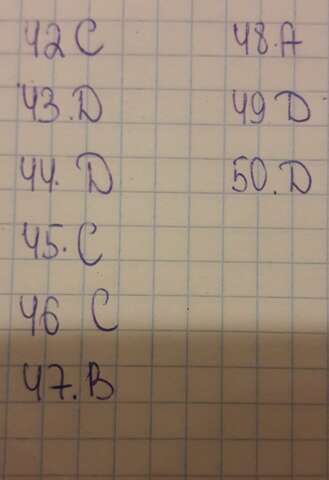 42 C
43. D
44. D
45. C
46 C
47. B
48. A
49 D
50. D